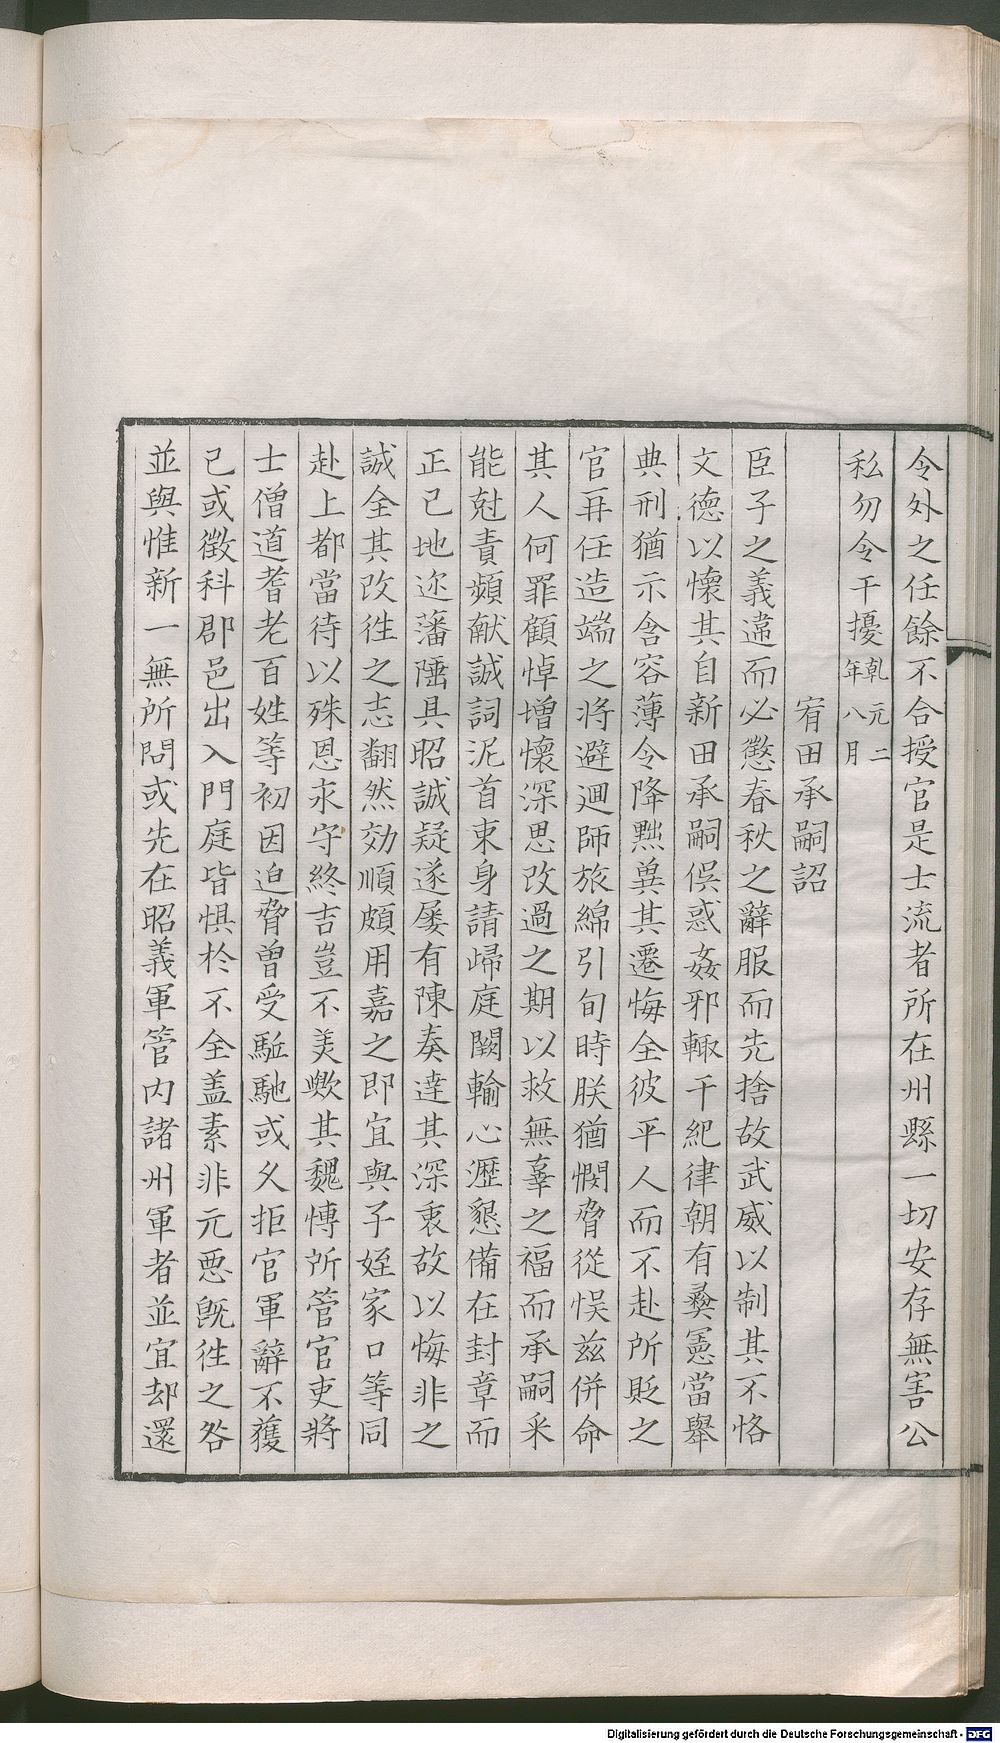 令外之任餘不合授官是士流者所在州縣一切安存無害公
私勿令干擾乾元二年八月
宥田承嗣詔
臣子之義違而必懲春秋之辭服而先捨故武威以制其不恪
文德以懷其自新田承嗣俁惑姦邪輙干紀律朝有彝憲當舉
典刑猶示含容薄令降黜兾其遷悔全彼平人而不赴所貶之
官再任造端之将避迴師旅綿引旬時朕猶憫脅從悮茲併命
其人何罪顧悼增懷深思改過之期以救無辜之福而承嗣釆
能尅責頻献誠詞泥首束身請歸庭闕輸心瀝懇備在封章而
正已地迩藩陲具昭誠疑遂屡有陳奏達其深衷故以悔非之
誠全其改徃之志翻然効順頗用嘉之即宜與子姪家口等同
赴上都當待以殊恩永守終吉豈不美歟其魏愽所管官吏將
士僧道耆老百姓等初因迫脅曽受駈馳或乆拒官軍辭不獲
已或徵科郡邑出入門庭皆懼扵不全盖素非元惡旣徃之咎
並與惟新一無所問或先在昭義軍管内諸州軍者並宜却還
Digitalisierung gefördert durch die Deutsche Forschungsgemeinschaft - DFG